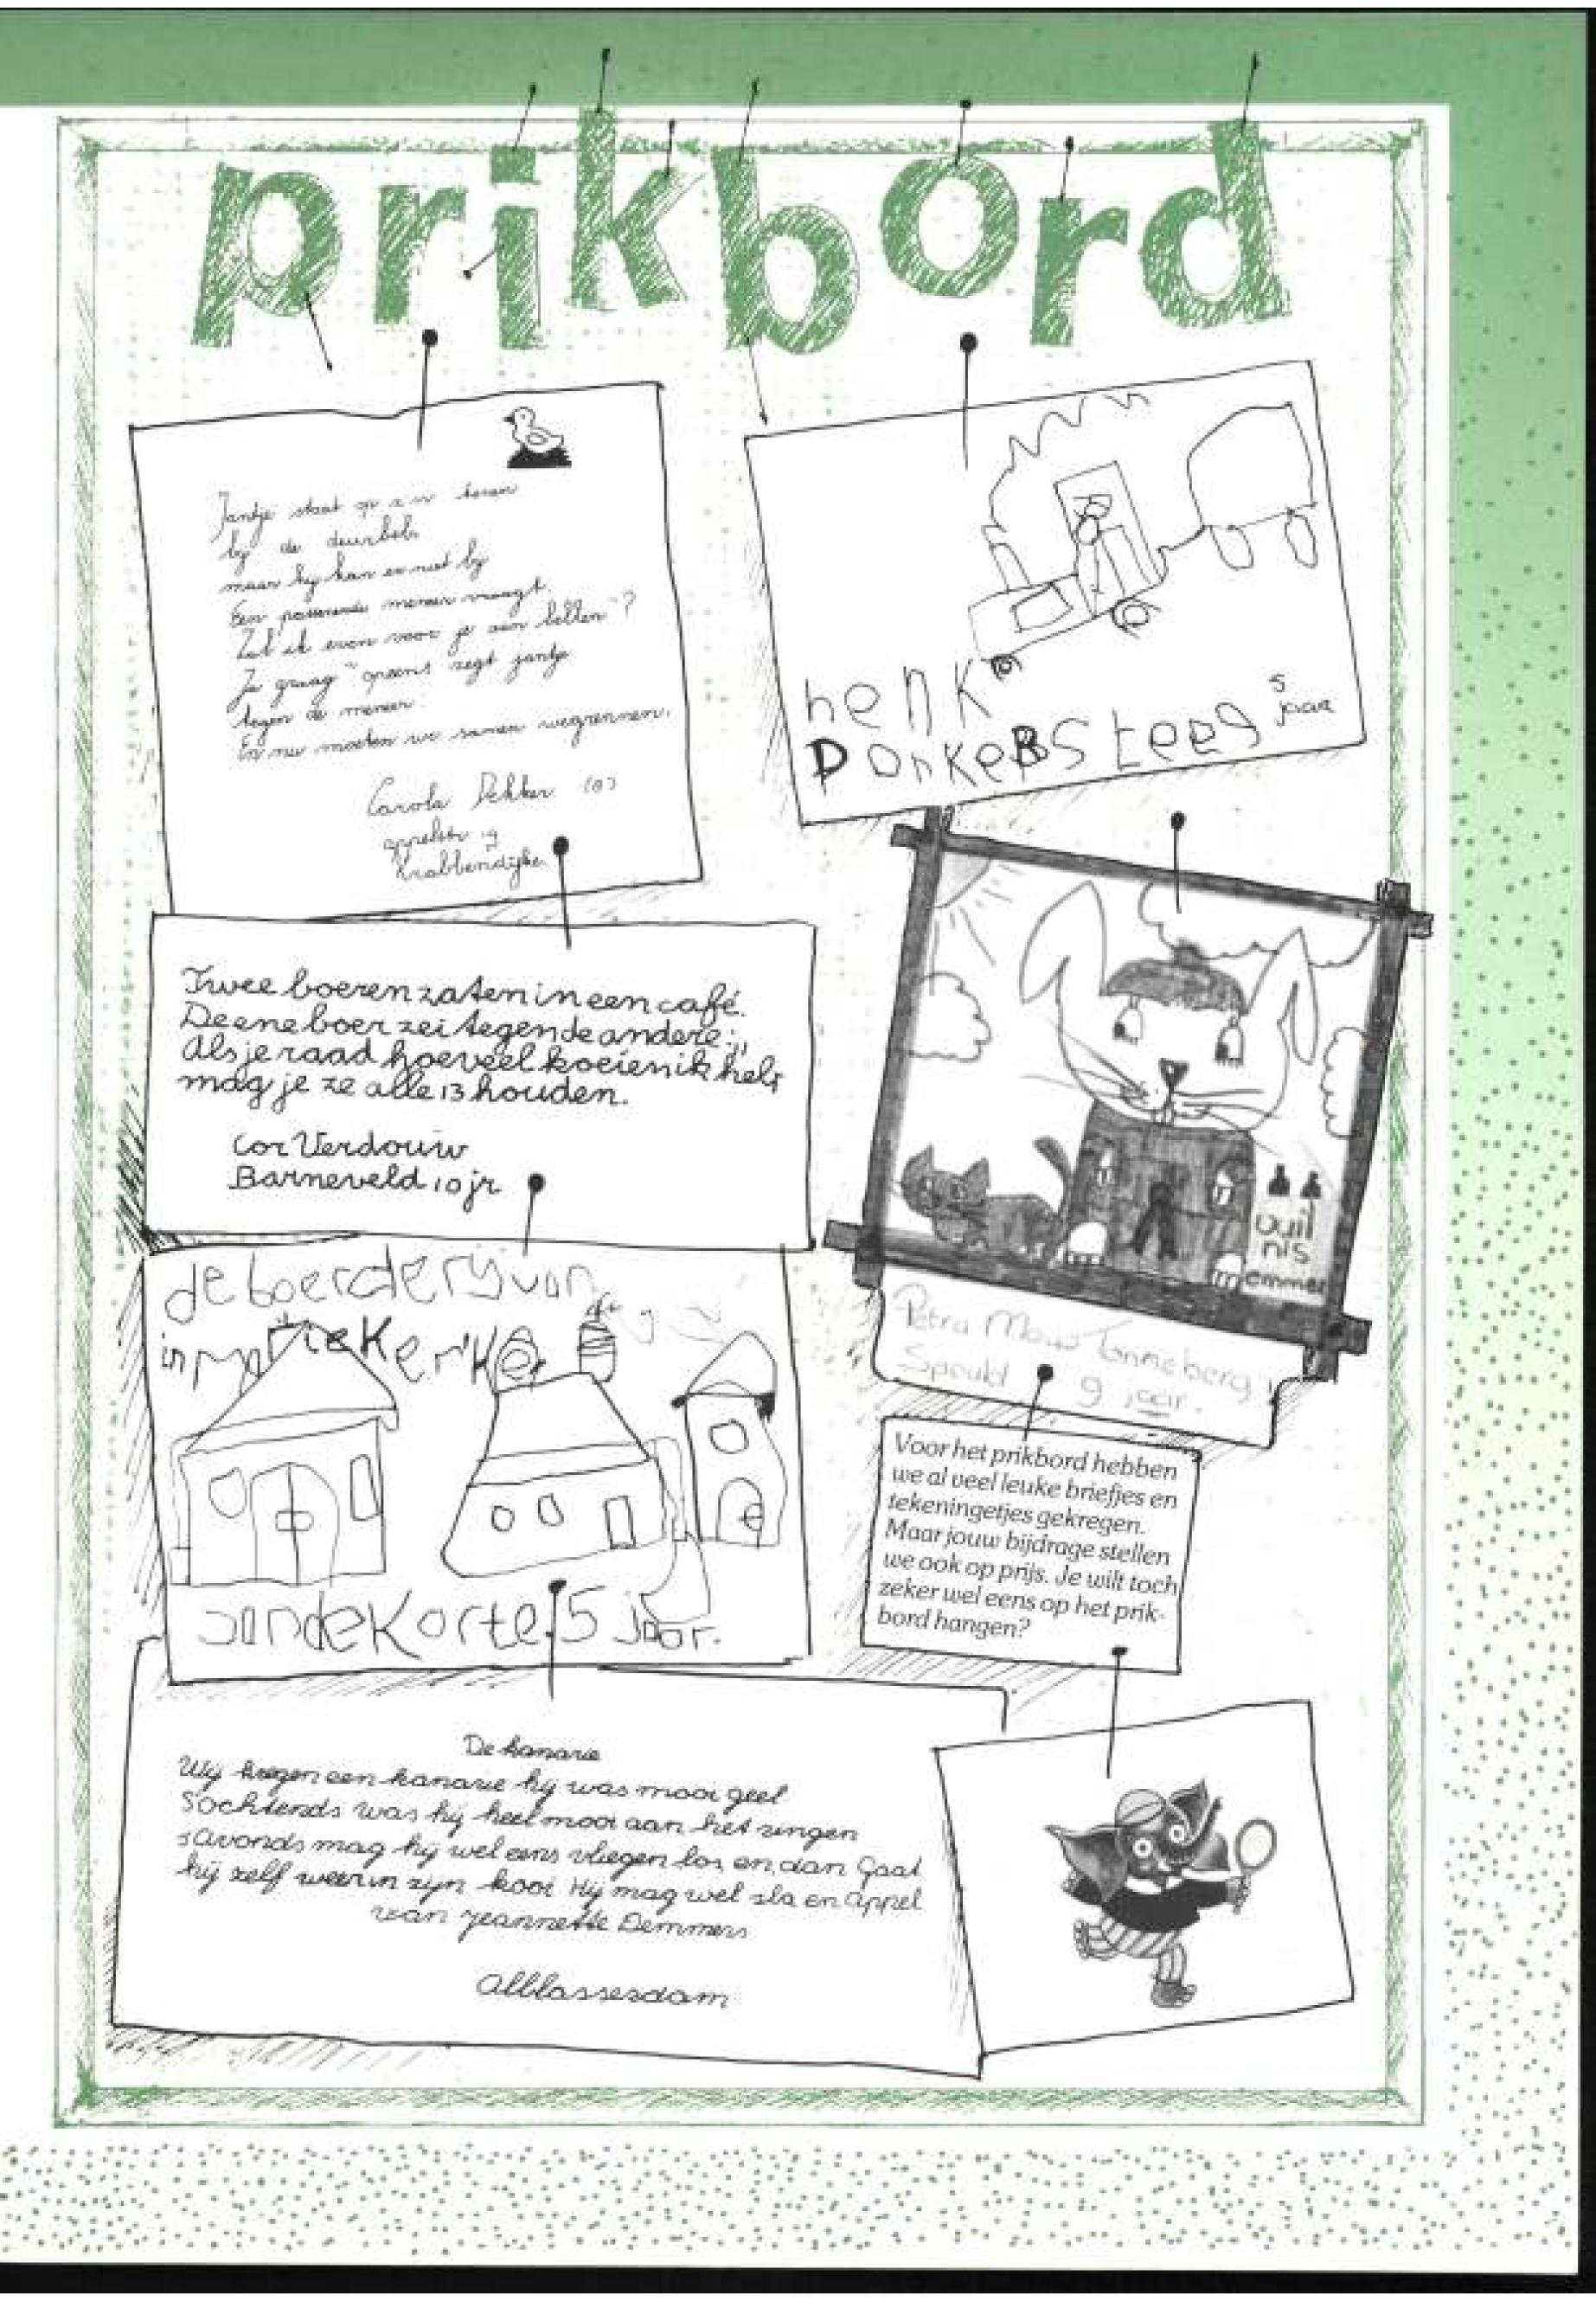 prikbord
Jantje staat op z'n tenen
bij de deurbel
maar hij kan er niet bij
Een passerende meneer vraagt.
Zal ik even voor je aan bellen"?
Ja graag" opeens zegt jantje
tegen de meneer
En nu moeten we samen wegrennen.
Carola Dekker (8)
19
Krabbendijke
henk
DonkeRSteeg 5 jaar
Twee boeren zaten in een café.
De ene boer zei tegen de andere:„
Als je raad hoeveel koeien ik heb,
mag je ze alle 13 houden.
Cor Verdouw
Barneveld 10 jr
vuil
nis
emmer
Petra Mouw
Speuld 9 jaar.
de boerderij van
in
jan de Korte 5 jaar.
Voor het prikbord hebben
we al veel leuke briefjes en
tekeningetjes gekregen.
Maar jouw bijdrage stellen
we ook op prijs. Je wilt toch
zeker wel eens op het prik-
bord hangen?
De kanarie
Wij kregen een kanarie hij was mooi geel
Sochtends was hij heel mooi aan het zingen
savonds mag hij wel eens vliegen los en dan Gaat
hij zelf weer in zijn kooi Hij mag wel sla en appel
van Jeannette Demmers
Alblasserdam